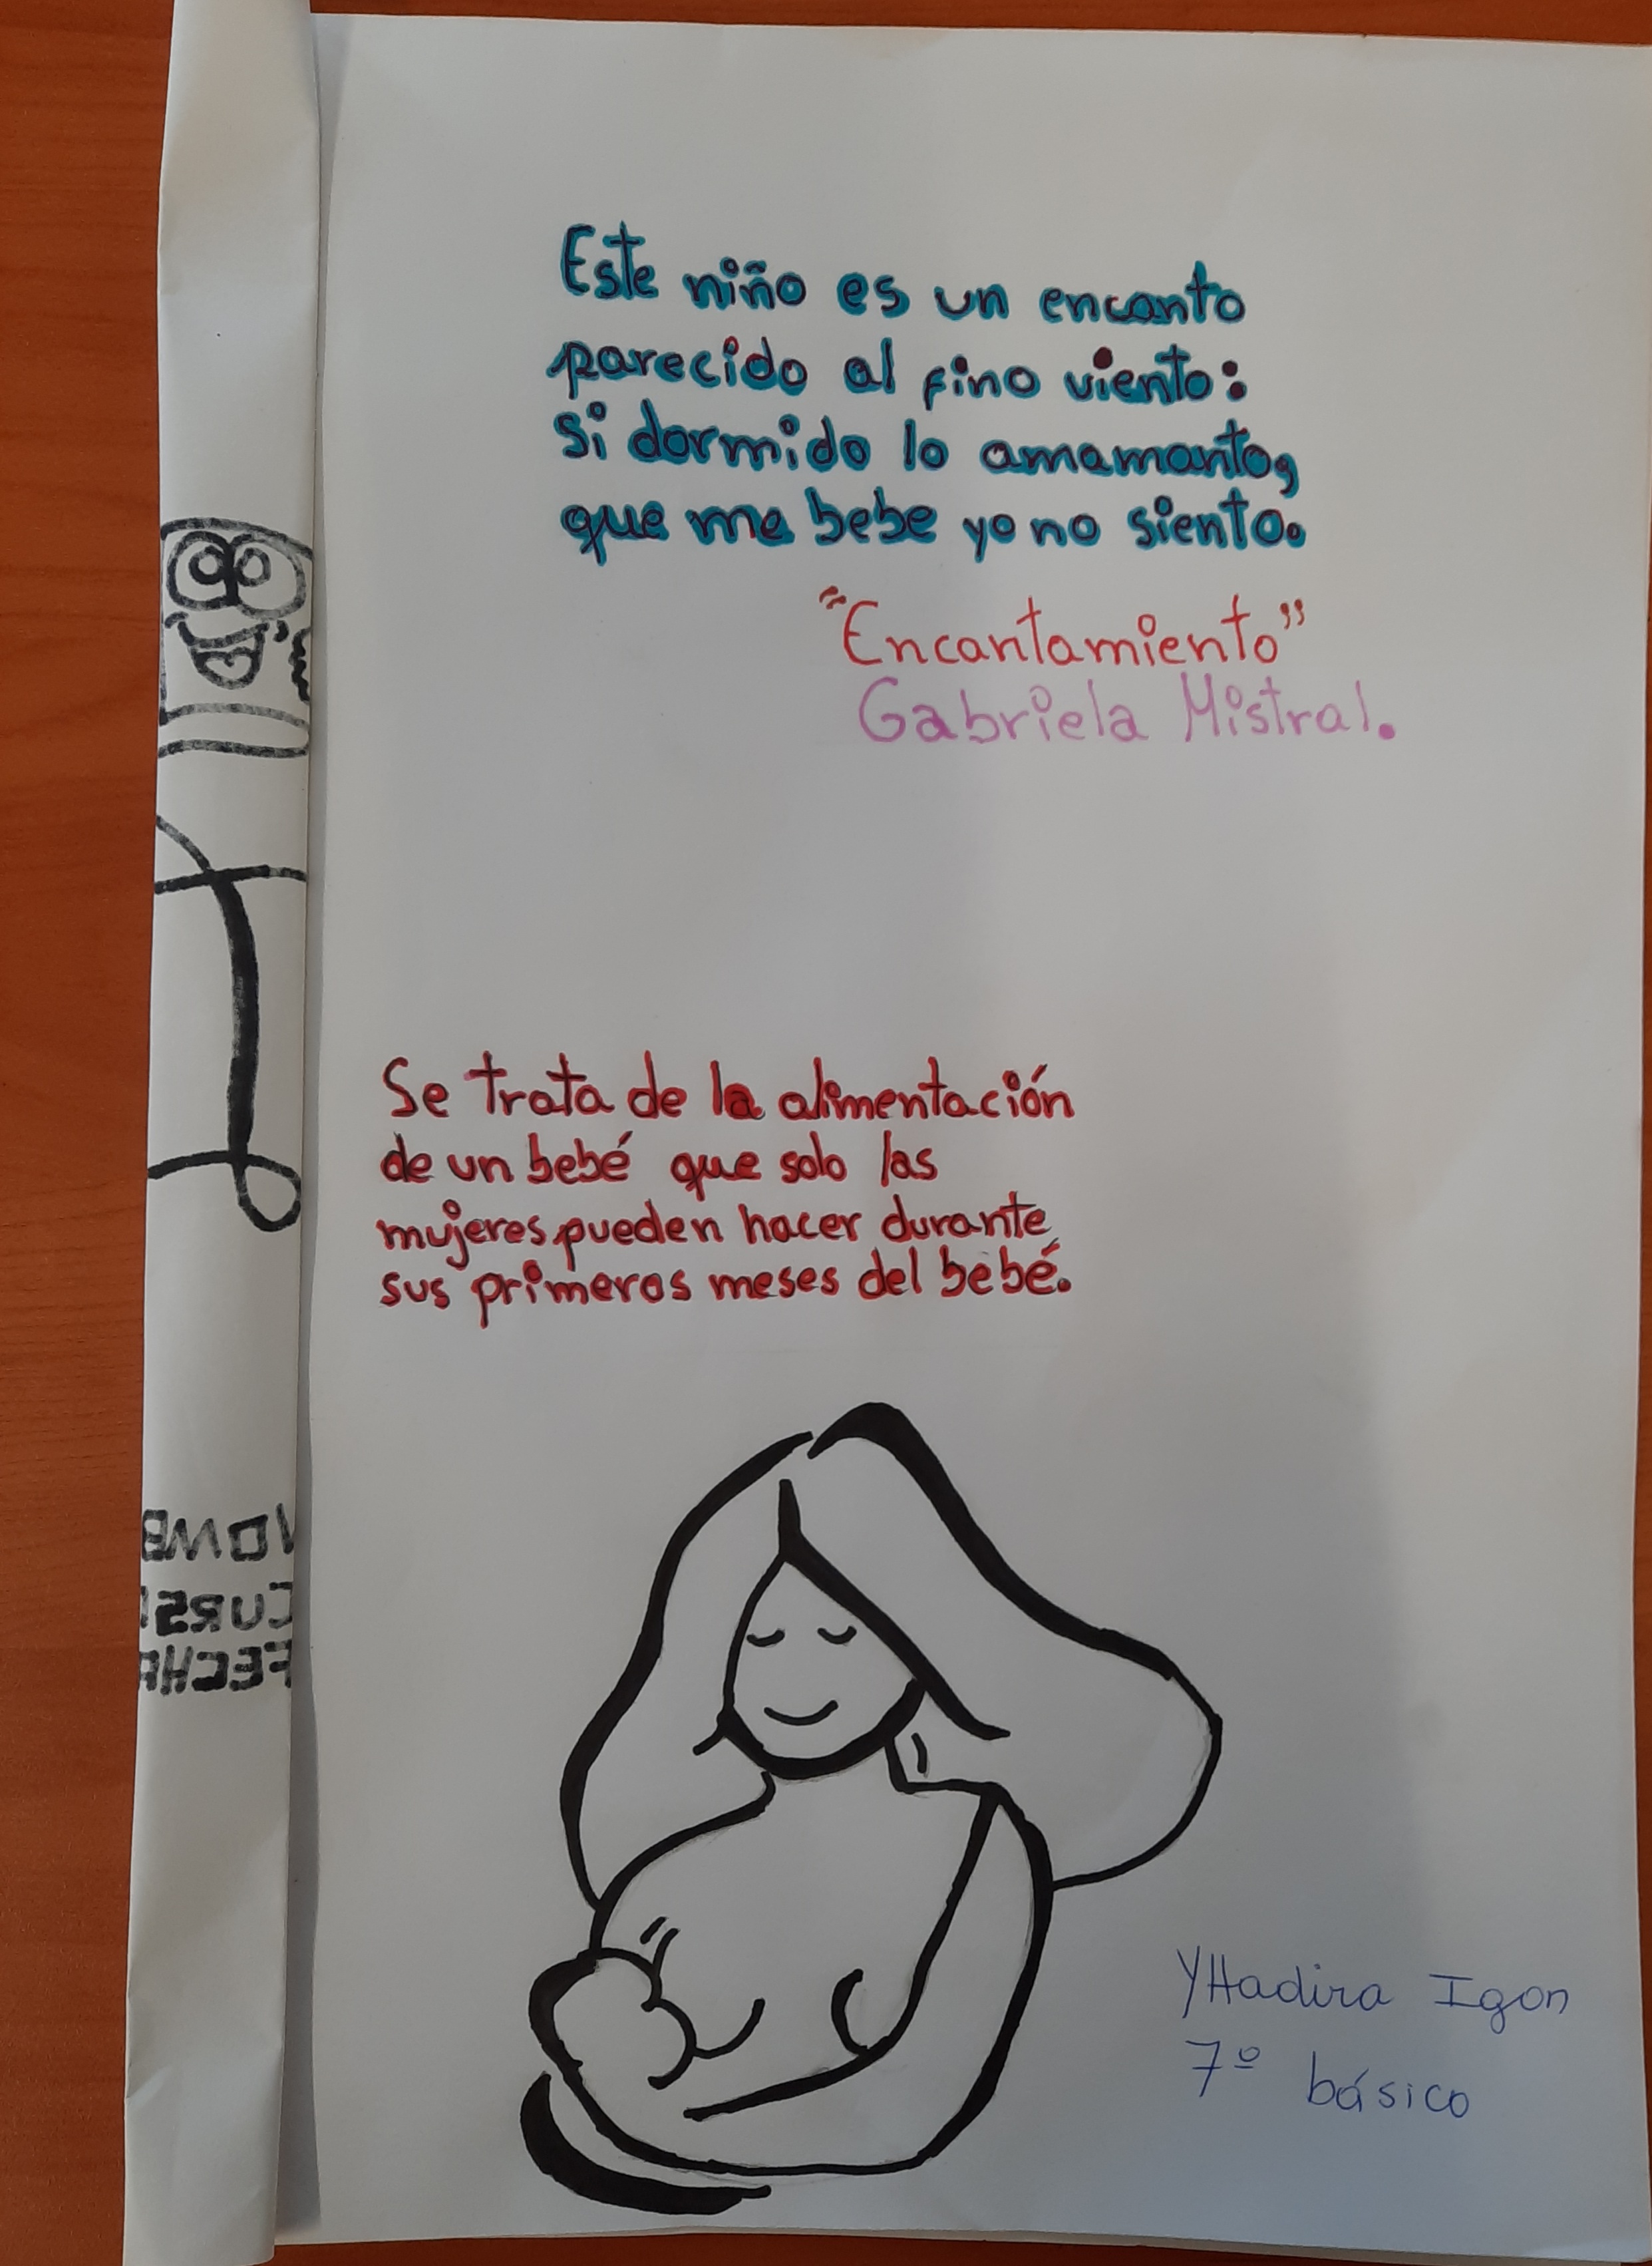 Este niño es un encanto
parecido al fino viento:
si dormido lo amamanto,
que me bebe yo no siento.
"Encantamiento"
Gabriela Mistral.
Se trata de la alimentación
de un bebé que solo las
mujeres pueden hacer durante
sus primeros meses del bebé.
YHadira Igon
7º básico